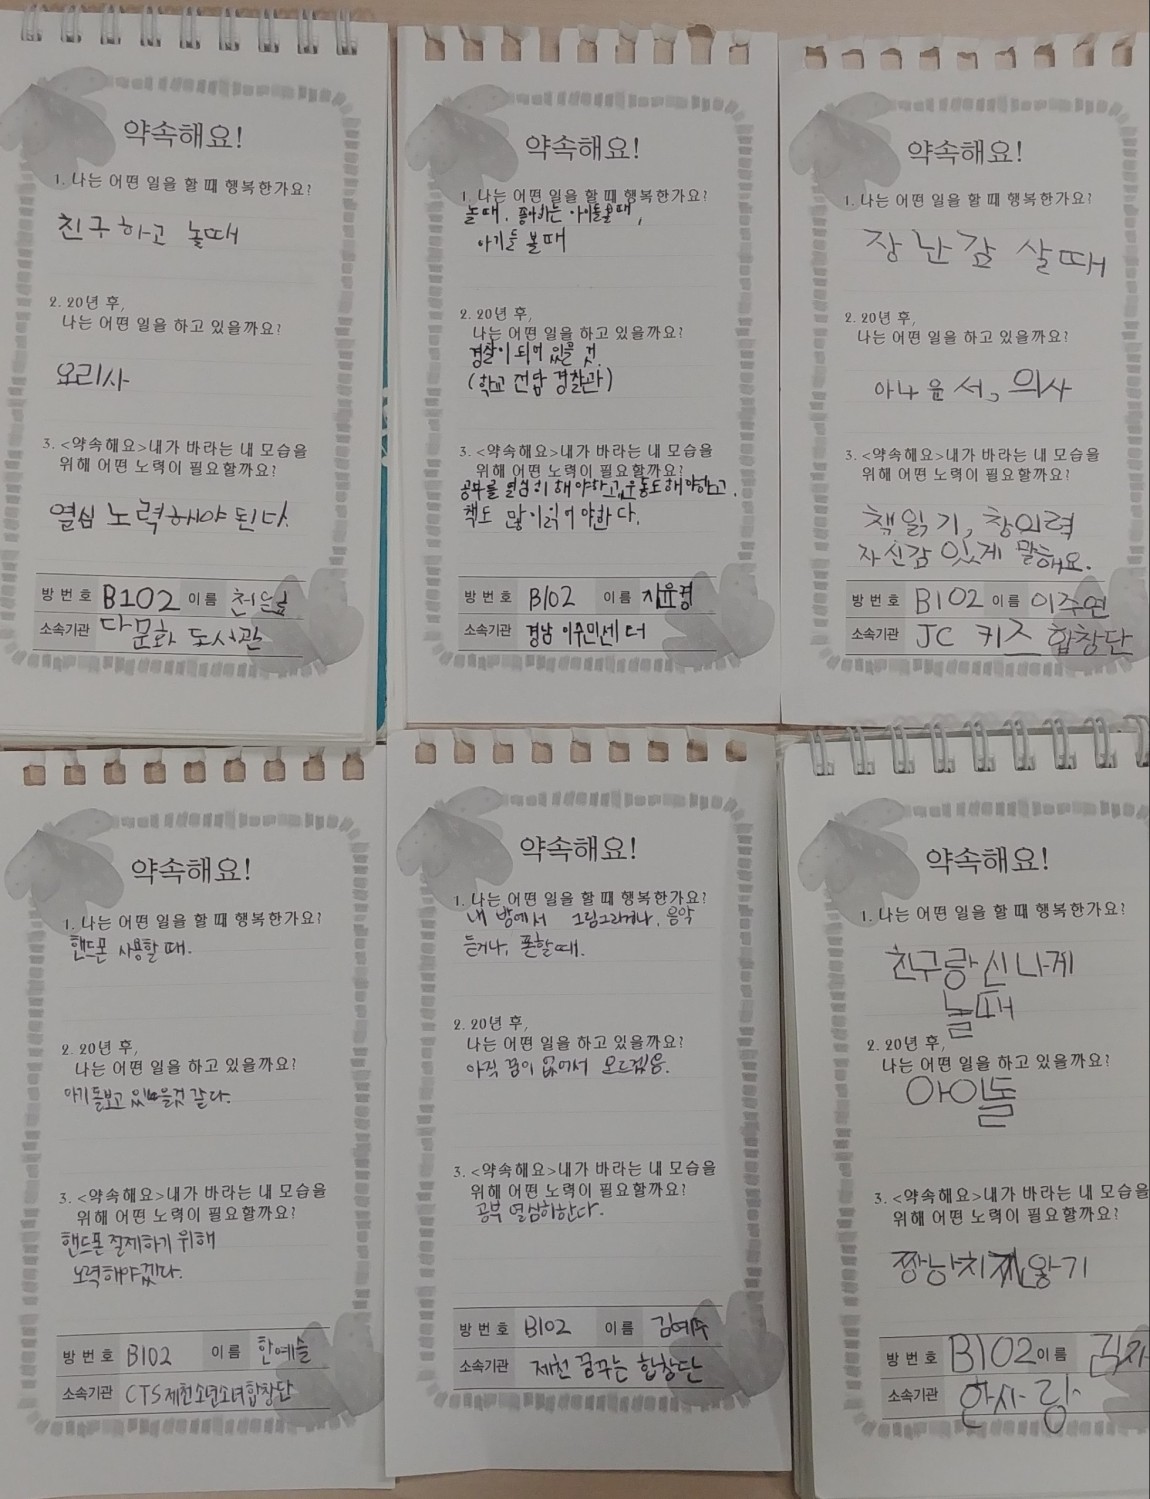 약속해요!
1. 나는 어떤 일을 할 때 행복한가요?
친구하고 놀때
2. 20년 후,
나는 어떤 일을 하고 있을까요?
요리사
3. <약속해요>내가 바라는 내 모습을
위해 어떤 노력이 필요할까요?
열심 노력해야 된다.
방 번호 B102 이름
소속기관 다문화 도서관
약속해요!
1. 나는 어떤 일을 할 때 행복한가요?
놀때, 좋아하는 아이돌볼때,
아기들 볼때
2. 20년 후,
나는 어떤 일을 하고 있을까요?
경찰이 되어 있을 것.
(학교 전담 경찰관)
3. <약속해요>내가 바라는 내 모습을
위해 어떤 노력이 필요할까요?
공부를 열심히 해야하고, 운동도 해야하고,
책도 많이읽어야한다.
방 번호 B102 이름
소속기관 경남 이주민센터
약속해요!
1. 나는 어떤 일을 할 때 행복한가요?
장난감 살때
2. 20년 후,
나는 어떤 일을 하고 있을까요?
아나운서, 의사
3. <약속해요>내가 바라는 내 모습을
위해 어떤 노력이 필요할까요?
책읽기, 창의력
자신감 있게 말해요.
방 번호 B102 이름 이주연
소속기관 JC 키즈 합창단
약속해요!
1. 나는 어떤 일을 할 때 행복한가요?
핸드폰 사용할 때.
2. 20년 후,
나는 어떤 일을 하고 있을까요?
아기돌보고 있을것 같다.
3. <약속해요>내가 바라는 내 모습을
위해 어떤 노력이 필요할까요?
핸드폰 절제하기 위해
노력해야겠다.
방 번호 B102 이름 한예슬
소속기관 CTS제천소년소녀합창단
약속해요!
1. 나는 어떤 일을 할 때 행복한가요?
내 방에서 그림그리거나, 음악
듣거나, 폰할때.
2. 20년 후,
나는 어떤 일을 하고 있을까요?
아직 꿈이 없어서 모르겠음.
3. <약속해요>내가 바라는 내 모습을
위해 어떤 노력이 필요할까요?
공부 열심히한다.
방 번호 B102 이름
소속기관 제천 꿈꾸는 합창단
약속해요!
1. 나는 어떤 일을 할 때 행복한가요?
친구랑 신나게
놀때
2. 20년 후,
나는 어떤 일을 하고 있을까요?
아이돌
3. <약속해요>내가 바라는 내 모습을
위해 어떤 노력이 필요할까요?
방 번호 B102 이름
소속기관 한사랑